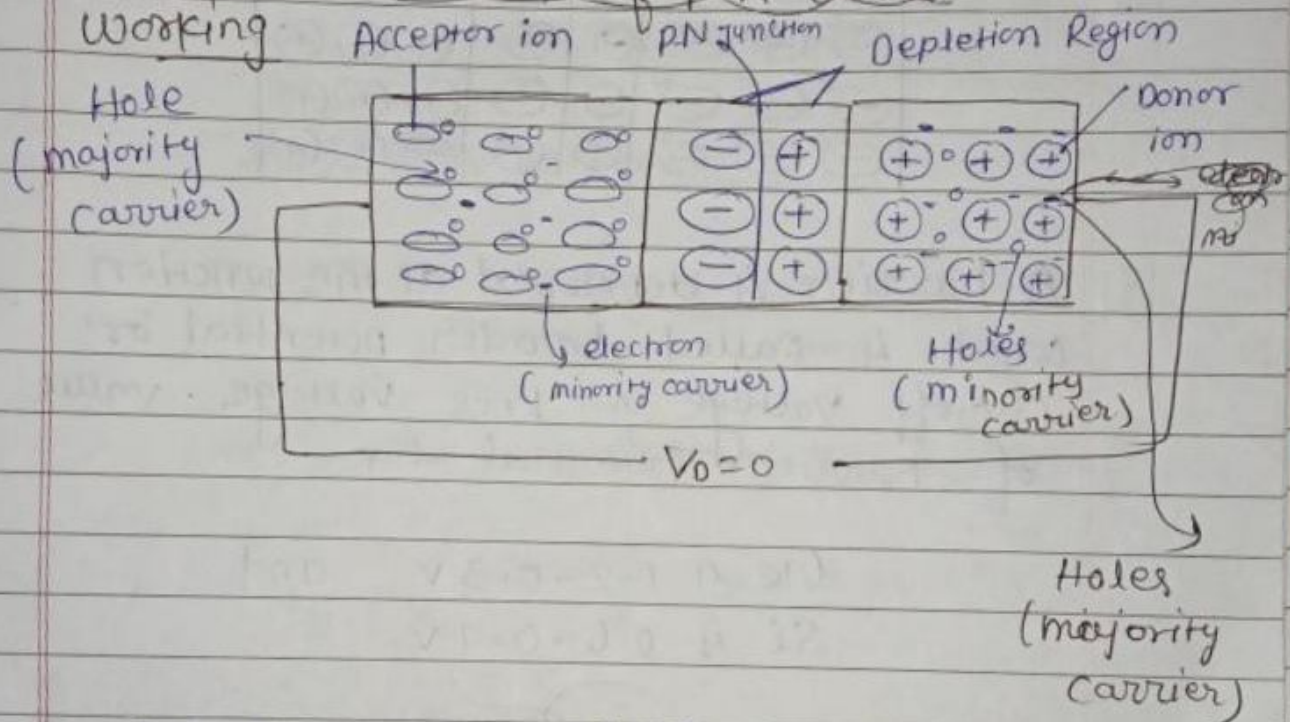 Working
Acceptor ion
P.N Junction
Depletion Region
Hole
(majority
carrier)
Donor
ion
− +
− +
− +
+ + +
+ + +
+ + +
electron
(minority carrier)
Holes
(minority
carrier)
VD = 0
Holes
(majority
carrier)